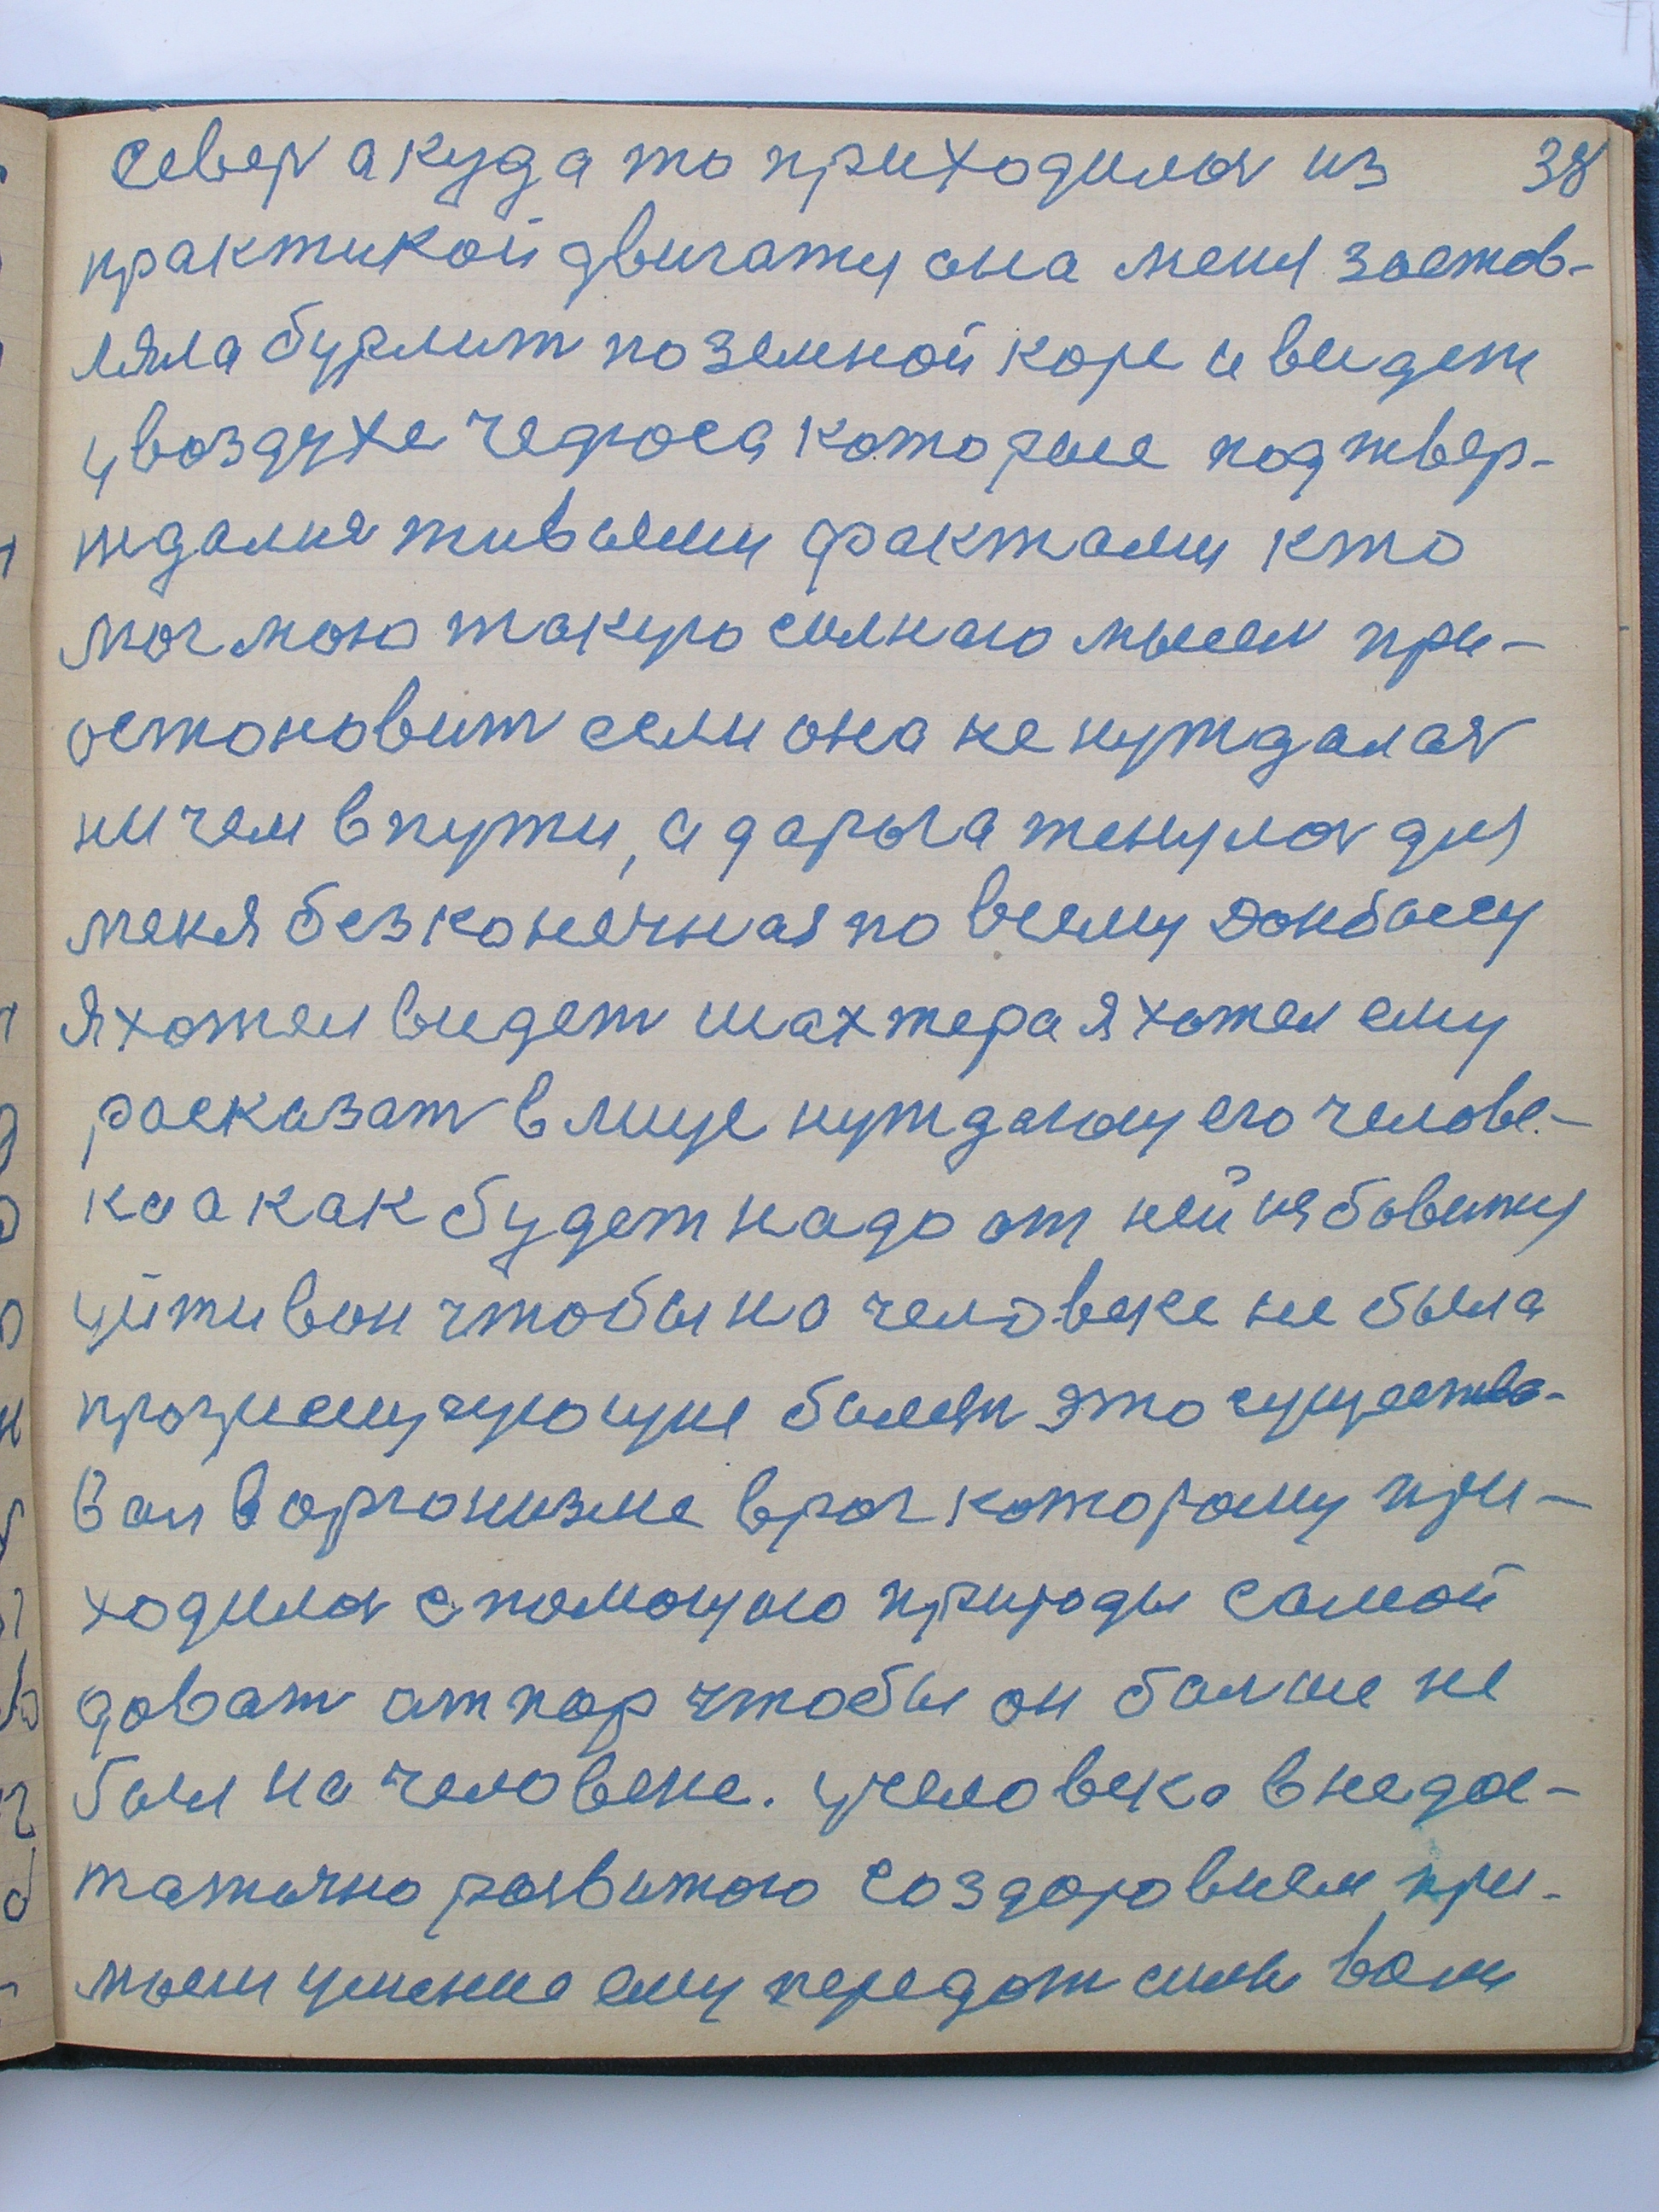 север а куда то приходилос из 38
практикой двигатц она меня застав-
ляла бурлит по земной коре и видет
у воздухе чедюса которые подтвер-
ждалис живыми фактами кто
мог мою такую силную мысел при-
остоновит если она не нуждалас
ничем в пути, а дарога тенулас для
меня безконечная по всему Донбассу
Я хотел видет шахтера я хотел ему
расказат в лице нуждающего челове-
ка а как будет надо от ней избавитця
уйти вон чтобы на человеке не была
прогрисирующие болезн это существо-
вал в организме враг которому при-
ходилос с помощию природы самой
доват атпор чтобы он болше не
был на человеке. у человека в недос-
таточно развитою со здоровием при-
мем умение ему передат силы воли